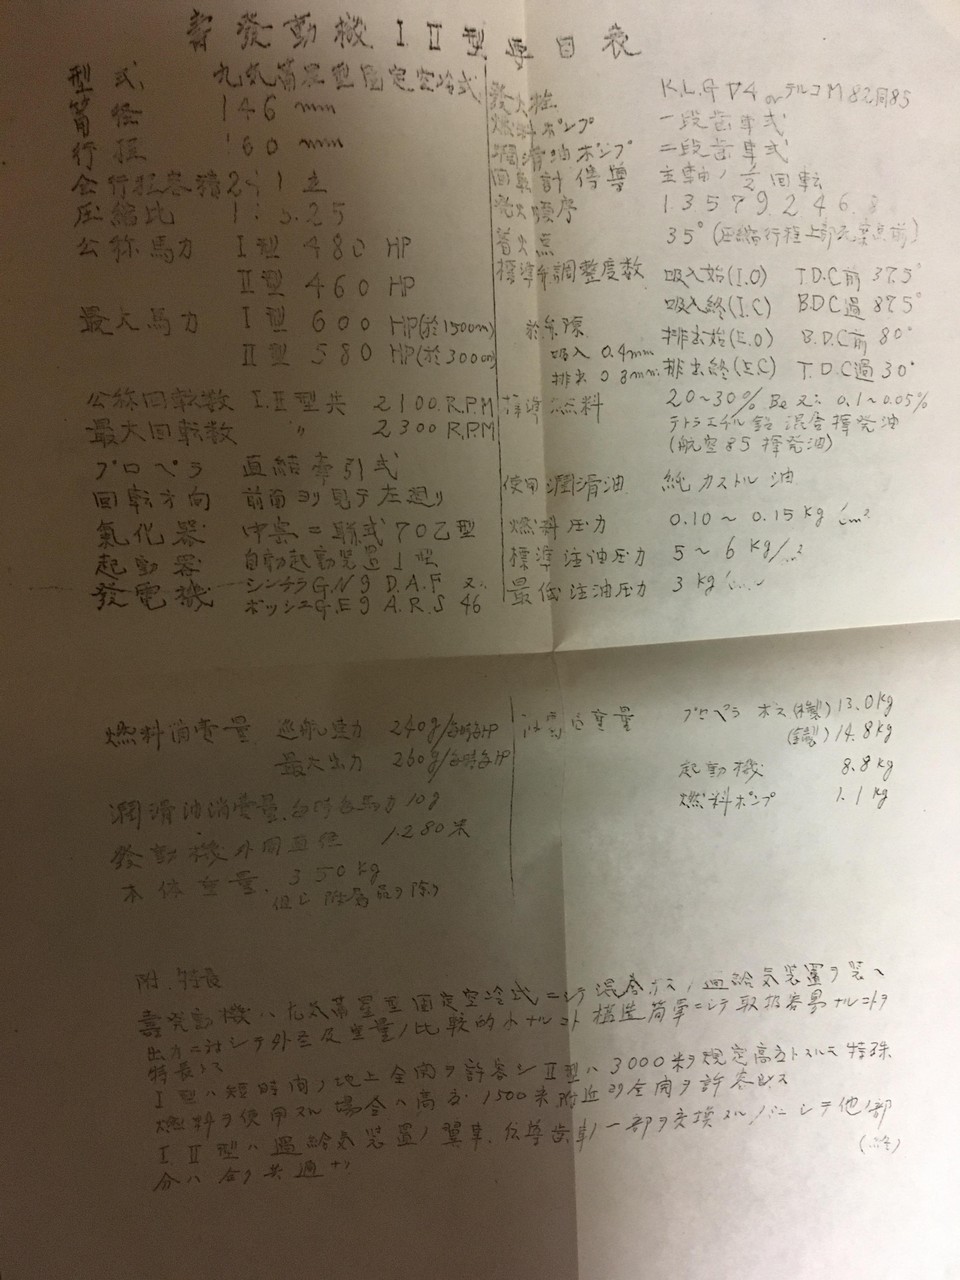 壽發動機 I.II型要目表
型式 九気筒星型固定空冷式
筒径 146 mm
行程 160 mm
全行程容積 立
圧縮比 1:5.25
公称馬力 I型 480 HP
II型 460 HP
最大馬力 I型 600 HP(於1500m)
II型 580 HP(於3000m)
公称回転数 I.II型共 2100 R.P.M
最大回転数 〃 2300 R.P.M
プロペラ 直結牽引式
回転方向 前面ヨリ見テ左廻リ
氣化器 中央二聯式70乙型
起動器 自動起動装置1型
發電機 シンチラG.N9 D.A.F 又ハ
ボッシュG.E9 A.R.S 46
發火栓 K.L.G V4 or テルコM82同85
燃料ポンプ 一段歯車式
潤滑油ポンプ 二段歯車式
回転計傳導 主軸ノ1/2回転
発火順序 1.3 5 7 9. 2 4 6. 8
着火点 35°(圧縮行程上部死点前)
標準弁調整度数 吸入始(I.O) T.D.C前 37.5°
吸入終(I.C) B.D.C過 87.5°
弁隙 排出始(E.O) B.D.C前 80°
吸入 0.4mm 排出終(E.C) T.D.C過 30°
排出 0.8mm
標準燃料 20~30% Be 又ハ 0.1~0.05%
テトラエチル鉛 混合揮発油
(航空85揮発油)
使用潤滑油 純カストル油
燃料圧力 0.10 ~ 0.15 kg/cm²
標準注油圧力 5 ~ 6 kg/
最低注油圧力 3 kg/
燃料消費量 巡航速力 240g/毎時毎HP
最大出力 260g/毎時毎HP
潤滑油消費量 毎時毎馬力 10g
發動機外周直径 1.280米
本体重量. 350kg
但シ附属品ヲ除ク
重量 プロペラボス 13.0kg
14.8kg
起動機 8.8kg
燃料ポンプ 1.1kg
附.特長
壽発動機ハ九気筒星型固定空冷式ニシテ混合ガスノ過給気装置ヲ装ヘ
出力ニ対シテ外径及重量ノ比較的小ナルコト構造簡單ニシテ取扱容易ナルコトヲ
特長トス
I型ハ短時間ノ地上全開ヲ許容シII型ハ3000米ヲ規定高度トスルモ特殊
燃料ヲ使用スル場合ハ高度1500米附近ヨリ全開ヲ許容ス
I.II型ハ過給気装置ノ翼車.伝導歯車ノ一部ヲ交換スルノミニシテ他ノ部
分ハ全ク共通ナリ
(終)